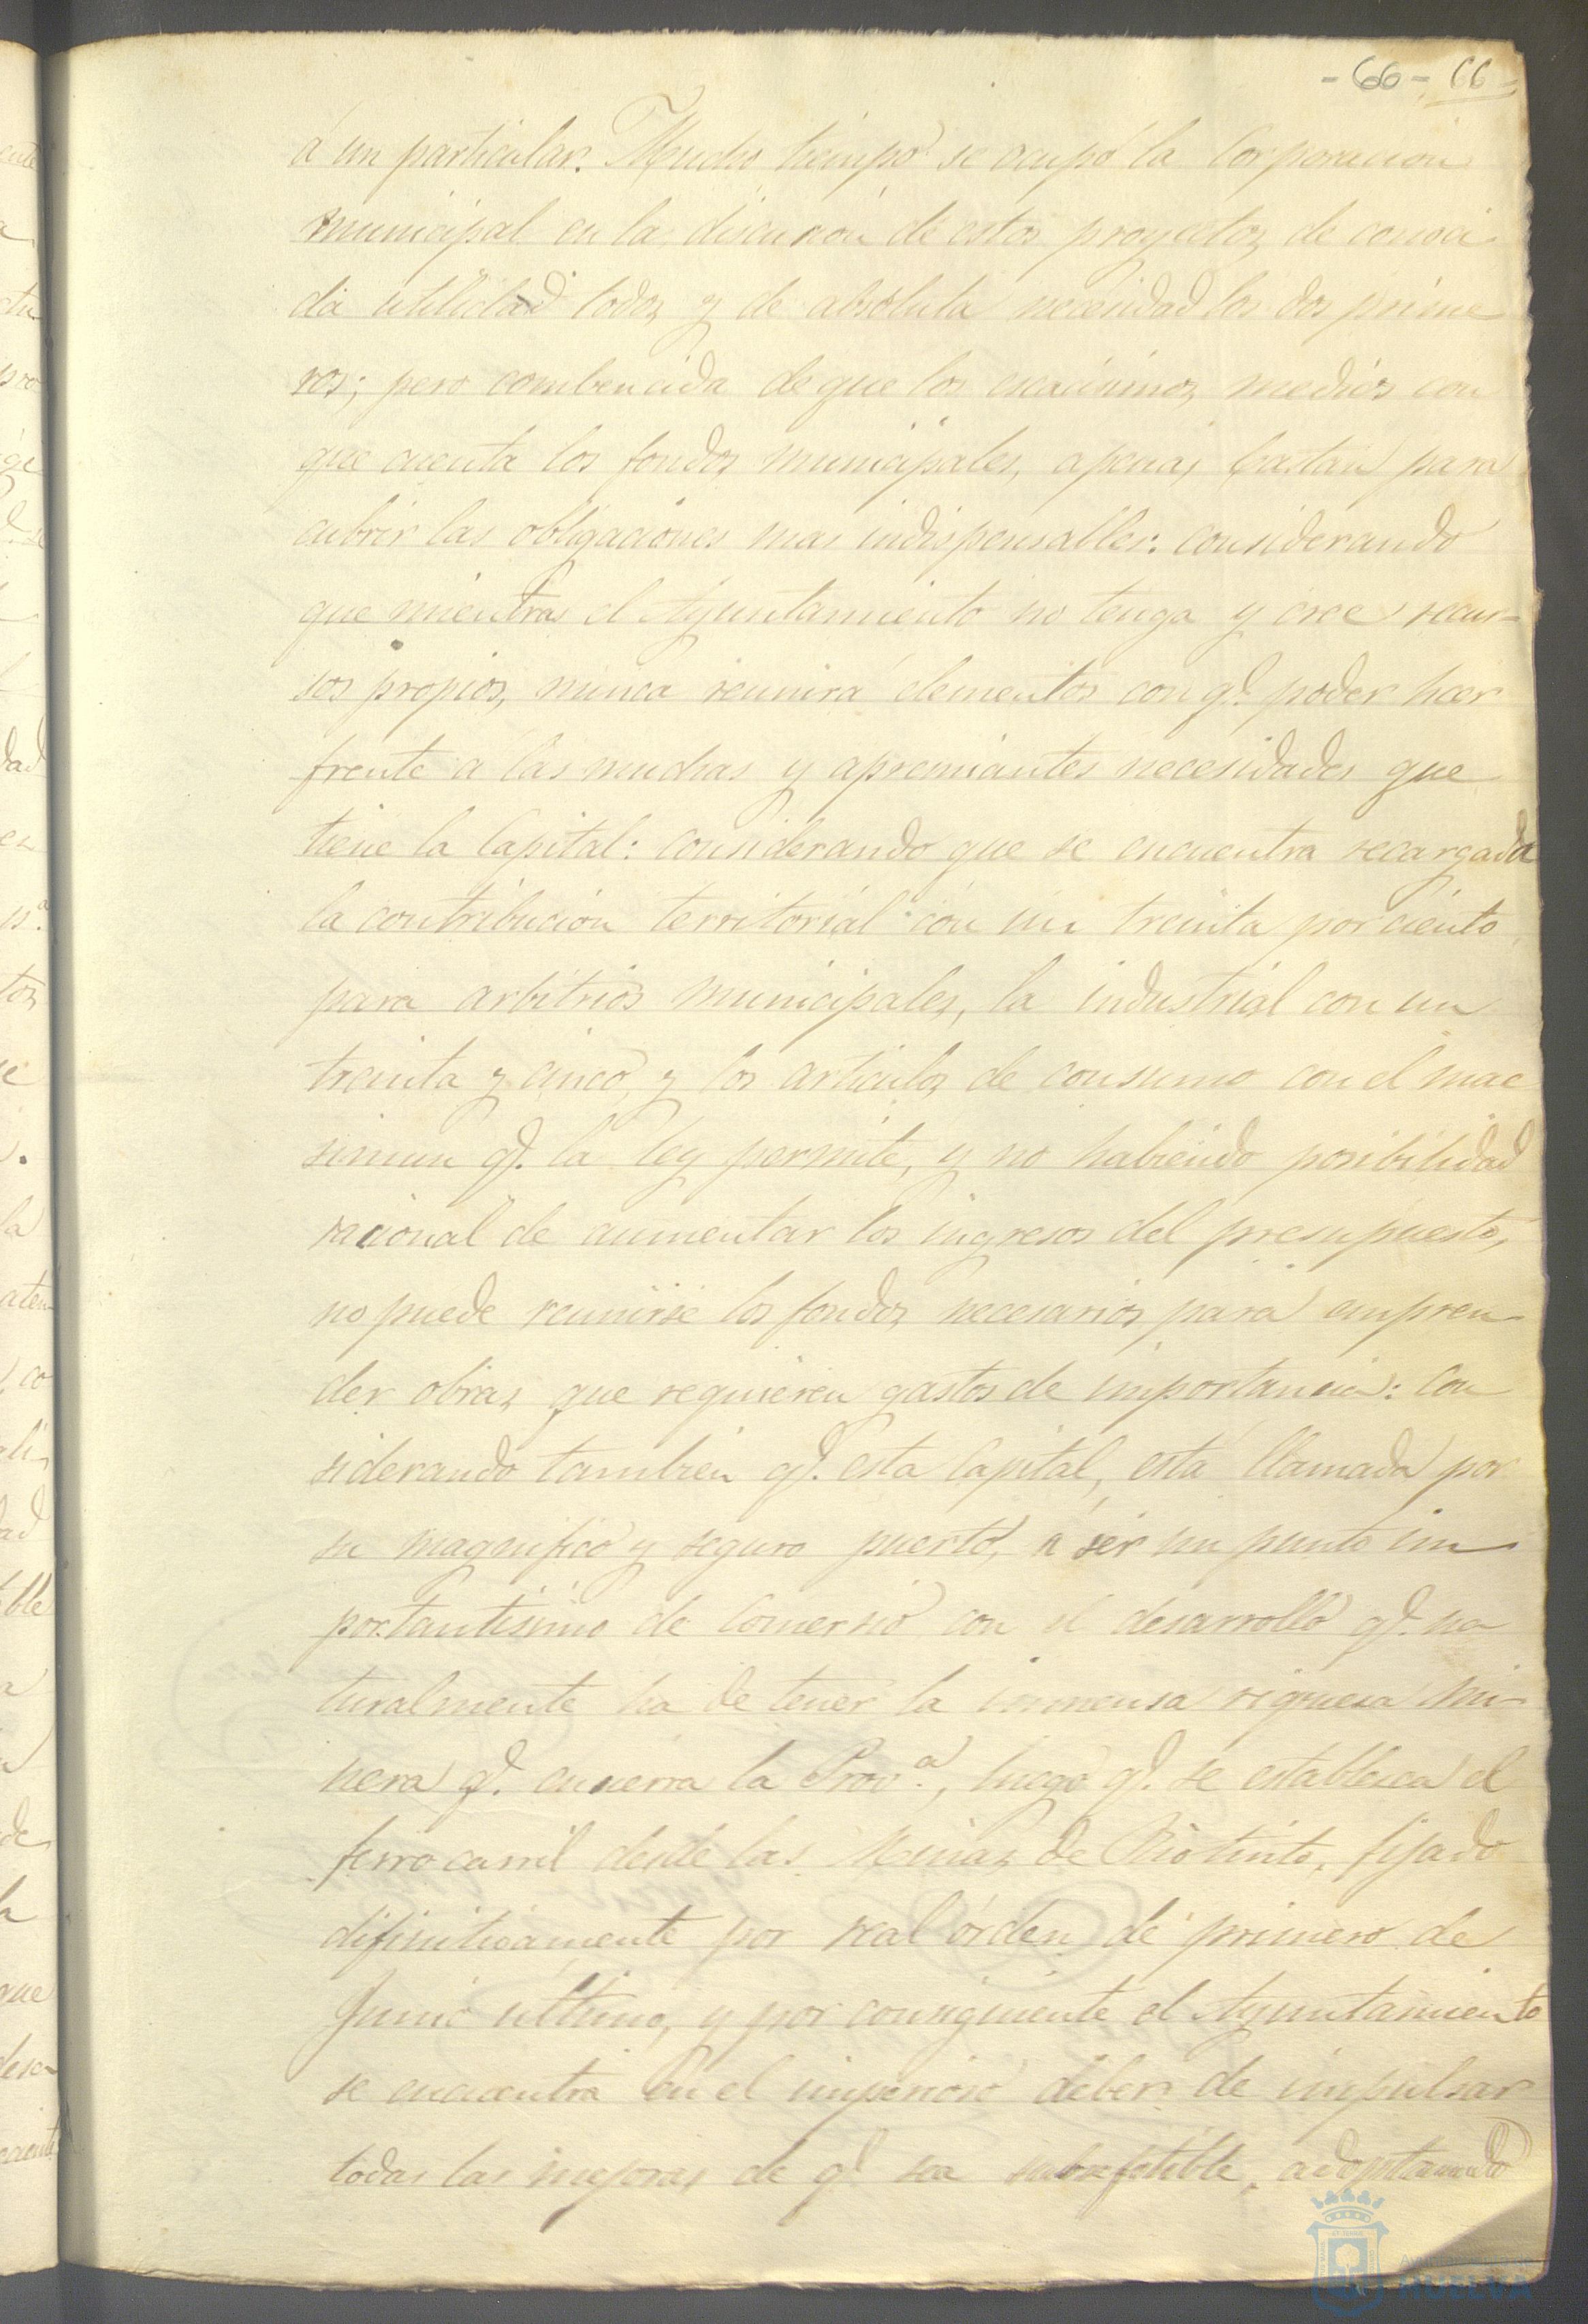 - 66 - 66 -
á un particular. Mucho tiempo se ocupó la Corporacion
municipal en la discusion de estos proyectos, de conoci
da utilidad todos, y de absoluta necesidad los dos prime
ros; pero combencida de que los escasisimos medios con
que cuenta los fondos municipales, apenas bastan para
cubrir las obligaciones mas indispensables: considerando
que mientras el Ayuntamiento no tenga y cree recur-
sos propios, nunca reunirá elementos con q.e poder hacer
frente a las muchas y apremiantes necesidades que
tiene la Capital: considerando que se encuentra recargada
la contribucion territorial con un treinta por ciento
para arbitrios municipales, la industrial con un
treinta y cinco, y los articulos de consumo con el mac
simun q.e la ley permite, y no habiendo posibilidad
racional de aumentar los ingresos del presupuesto,
no puede reunirse los fondos necesarios para empren-
der obras que requieren gastos de importancia: Con
siderando tambien q.e esta Capital, está llamada por
su magnifico y seguro puerto, a ser un punto im
portantisimo de Comersio con el desarrollo q.e na
turalmente ha de tener la inmensa riquesa mi-
nera q.e encierra la Prov.a, luego q.e se establesca el
ferro carril desde las Minas de Riotinto, fijado
difinitivamente por real órden de primero de
Junio ultimo, y por consiguiente el Ayuntamiento
se encuentra en el imperioso deber de impulsar
todas las mejoras de q.e sea suseptible, adoptando
HUELVA